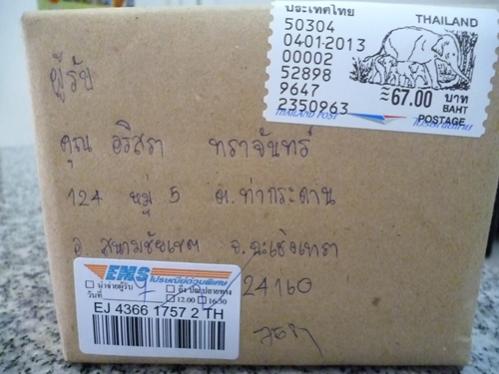 ประเทศไทย
THAILAND
50304
04-01-2013
00002
52898
9647
2350963
≈67.00 บาท
BAHT
POSTAGE
THAILAND POST
ไปรษณีย์ไทย
ผู้รับ
คุณ อริสรา ทราจันทร์
124 หมู่ 5 ต.ท่ากระดาน
อ. สนามชัยเขต จ.ฉะเชิงเทรา
24160
EMS ไปรษณีย์ด่วนพิเศษ
นำจ่ายผู้รับ ถึง ปณ.ปลายทาง
วันที่ 12.00 16.30
EJ 4366 1757 2 TH